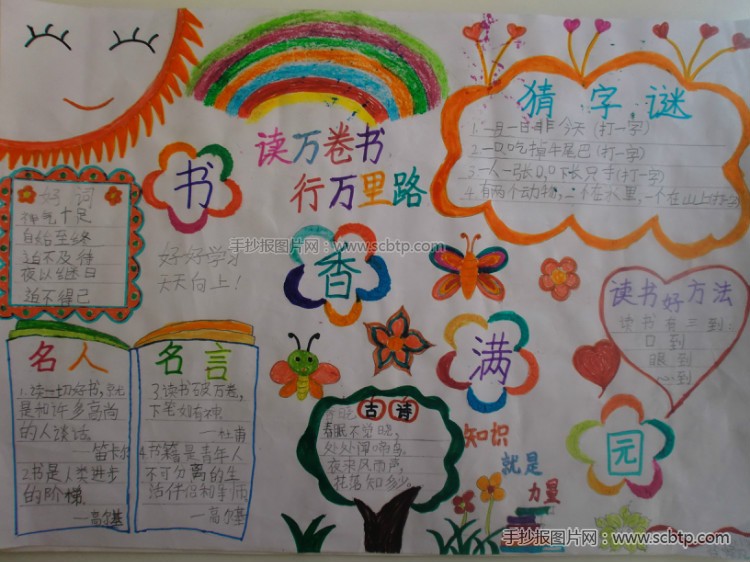 读万卷书
行万里路
猜字谜
1.一月一日非今天(打一字)
2.一口吃掉牛尾巴(打一字)
3.一人一张口,口下长只手(打一字)
4.有两个动物,一个在水里,一个在山上(打一字)
书
香
满
园
好词
神气十足
自始至终
迫不及待
夜以继日
迫不得已
好好学习
天天向上!
手抄报图片网:www.scbtp.com
读书好方法
读书有三到:
口到
眼到
心到
名人
1.读一切好书,就
是和许多高尚
的人谈话。
—笛卡尔
2.书是人类进步
的阶梯
—高尔基
名言
3.读书破万卷,
下笔如有神
—杜甫
4.书籍是青年人
不可分离的生
活伴侣和导师
—高尔基
古诗
春晓
春眠不觉晓,
处处闻啼鸟。
夜来风雨声,
花落知多少。
知识
就是
力量
手抄报图片网:www.scbtp.com